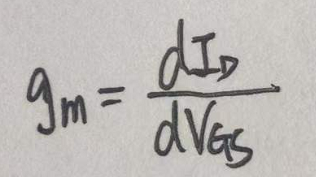 gm = dID / dVGS